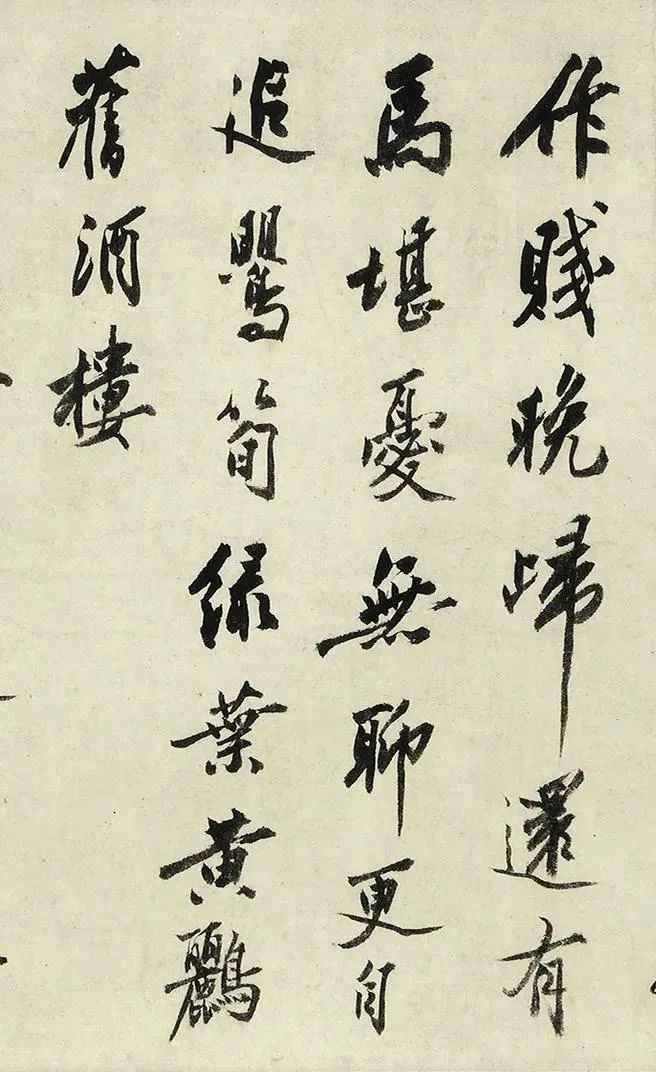 作賤晚歸還有
馬堪憂無聊更自
追鸎筍緑葉黃鸝
舊酒樓